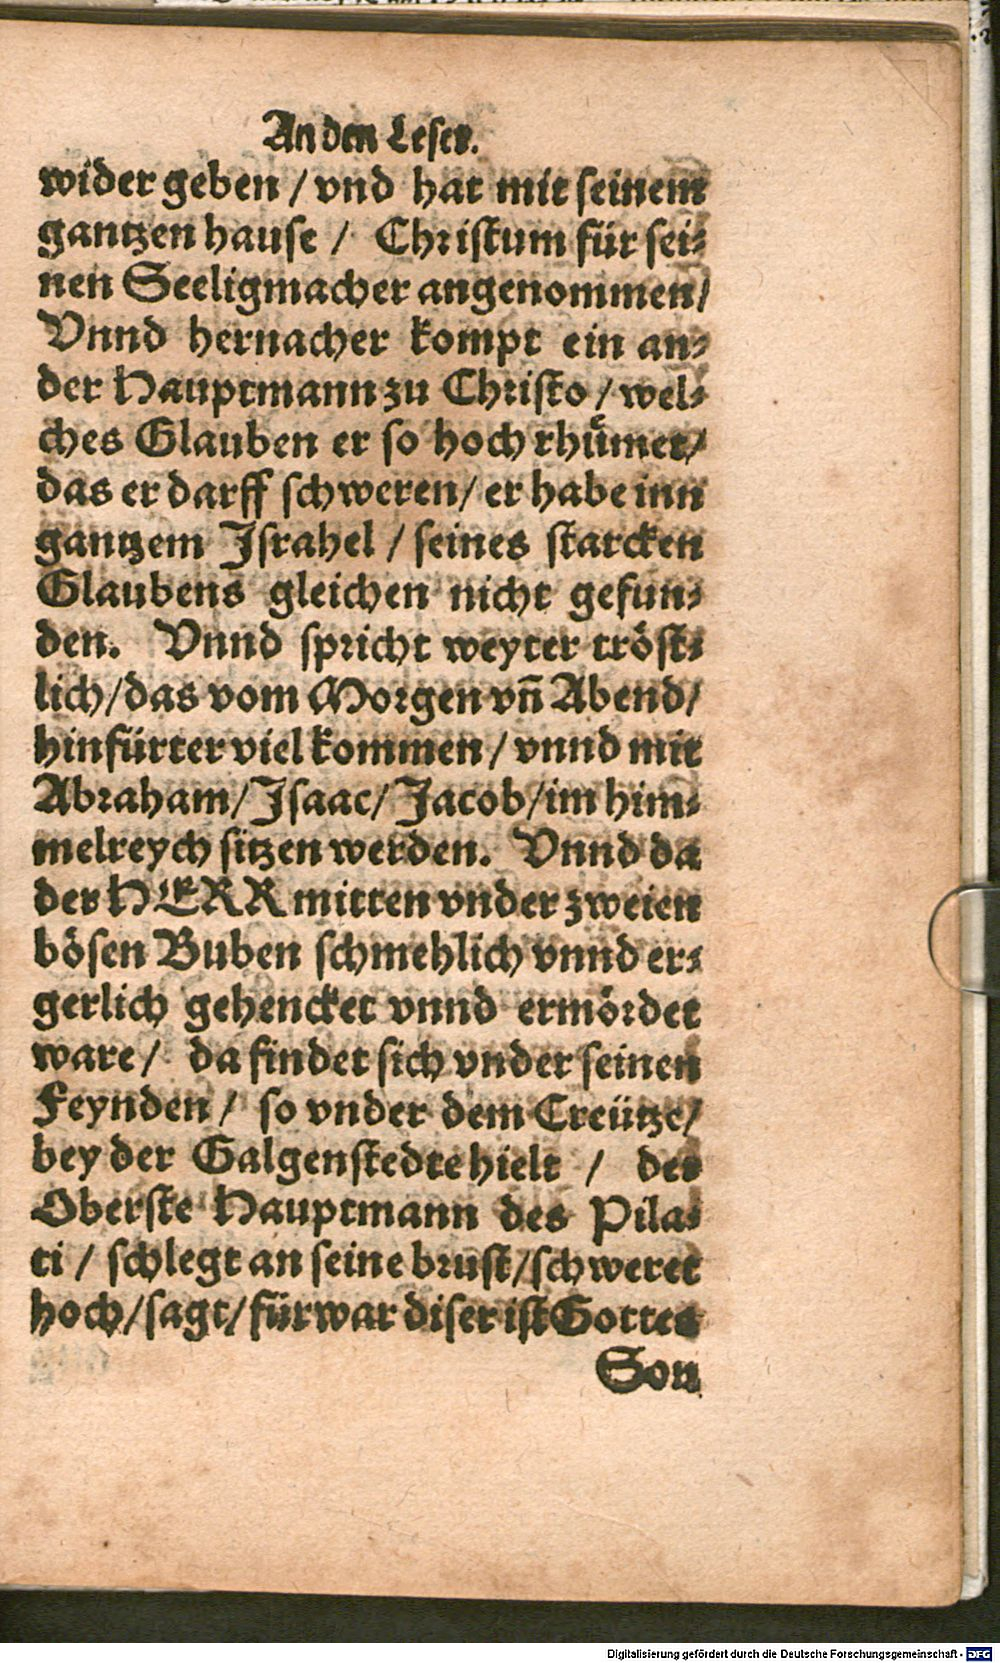 An den Leser.
wider geben / vnd hat mit seinem
gantzen hause / Christum für sei⸗
nen Seeligmacher angenommen /
Vnnd hernacher kompt ein an⸗
der Hauptmann zu Christo / wel⸗
ches Glauben er so hoch rhuͤmet /
das er darff schweren / er habe inn
gantzem Israhel / seines starcken
Glaubens gleichen nicht gefun⸗
den. Vnnd spricht weyter tröst⸗
lich / das vom Morgen vn̄ Abend /
hinfürter viel kommen / vnnd mit
Abraham / Isaac / Jacob / im him⸗
melreych sitzen werden. Vnnd da
der HERR mitten vnder zweien
bösen Buben schmehlich vnnd er⸗
gerlich gehencket vnnd ermördet
ware / da findet sich vnder seinen
Feynden / so vnder dem Creütze /
bey der Galgenstedte hielt / der
Oberste Hauptmann des Pila⸗
ti / schlegt an seine brust / schweret
hoch / sagt / fürwar diser ist Gottes
Son
Digitalisierung gefördert durch die Deutsche Forschungsgemeinschaft - DFG